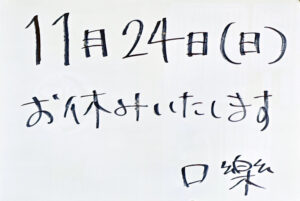 11月24日(日)
お休みいたします
口樂